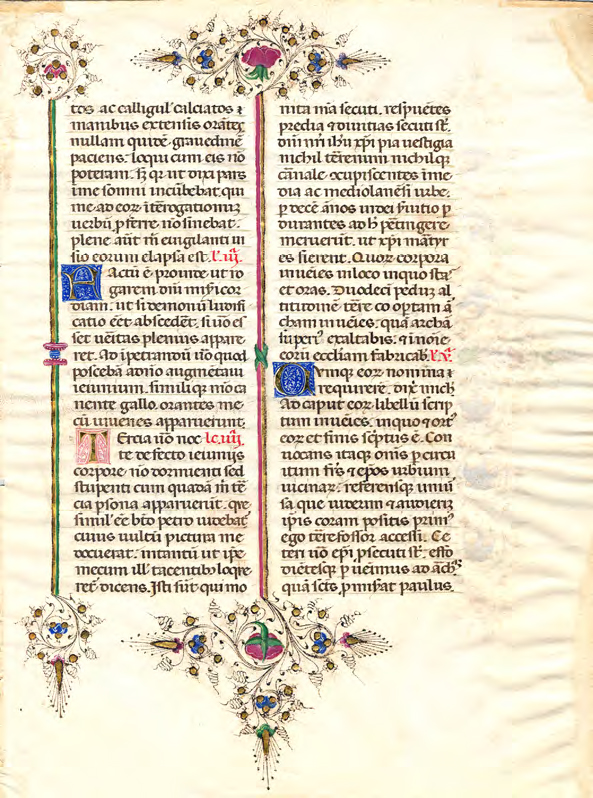 tos ac calligul' calciatos ⁊
manibus extensis orātes
nullam quidē grauedinē
paciens: loqui cum eis nō
poteram. sz q̄ ut dixi pars
ime somni incūbebat. qui
me ad eoꝝ ītērogationuꝫ
uerbū p̄ferre nō sinebat.
plene aūt m̄ euigulanti ui
sio eorum elapsa est. l'. iij.
Factū ē proinde ut ro
garem dnū mi͂icor
diam. ut si demonū ludifi
catio eēt abscedēt. si uō es
set ueritas plenius appare
ret. Ad īpetrandū uō quod
poscebā a dn̄o augmētaui
ieiunium. similiqꝫ mō ca
nente gallo. orantes me
cū iuuenes apparuerunt.
Tercia uō noc lc. iiij.
te defecto ieiuniis
corpore. nō dormienti sed
stupenti cum quadā m̄ tē
cia psona apparuerūt. que
simil' eē bt̄o petro uidebat᷑
cuius uultū pictura me
docuerat. intantū ut ip̄e
mecum ill' tacentib loq̄re
ret᷑ dicens. Isti sūt qui mo
nita mīa secuti. respuētes
predia ⁊ diuitias secuti sī.
dn̄i nr̄i ihū xp̄i pia uestigia
nichil tērenum nichilqꝫ
cārnale ꝯcupiscentes ī me
dia ac mediolanēsi urbe.
p decē ānos uirtu p
durantes ad h̄ pētingere
meruerūt. ut xp̄i mātyr
es fierent. Quoꝝ corpora
inuēies in loco in quo sta
et oras. Duodecī pedūꝫ al
titudinē tēre coopertam ā
cham inuēies. quā archā
sup̄erē exaltabis. ⁊ in oīe
eorū eccl'iam fabricab. l'. v.
Cūmqꝫ eoꝝ nomina
requirerē. dix̄ mich
Ad caput eoꝝ libellū scrip
tum inuēies. in quo ⁊ ort᷑
eoꝝ et finis scēptus ē. Con
uocans itaqꝫ omīs p circu
itum frīs ⁊ ep̄os urbium
uicinaꝝ. referensqꝫ uniūi
sa que uiderim ⁊ audierī
ip̄is coram positis prim᷑
ego tēre fossor accessi. Ce
teri uō ep̄i p̄secuti sī. effo
diētesqꝫ p uēimus ad āch
quā scts p̄misāt paulus.